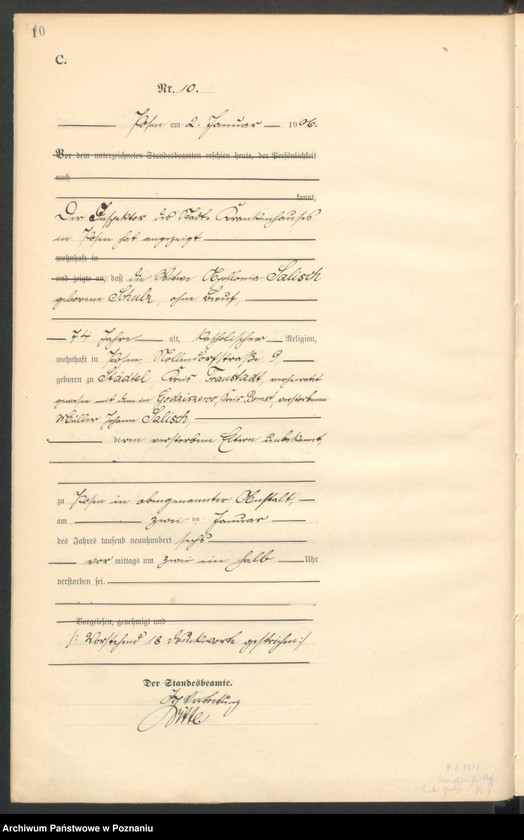 10
C.
Nr. 10.
Posen am 2. Januar 1906.
Vor dem unterzeichneten Standesbeamten erschien heute, der Persönlichkeit
nach
kannt,
Der Inspektor des Stadt. Krankenhauses
in Posen hat angezeigt
wohnhaft in
und zeigte an, daß die Witwe Apollonia Salisch
geborene Schulz, ohne Beruf,
74 Jahre alt, katholischer Religion,
wohnhaft in Posen, Nollendorfstraße 9,
geboren zu Städtel Kreis Fraustadt, verheiratet
gewesen mit dem in Godziszewo, Kreis Bomst, verstorbenen
Müller Johann Salisch,
deren verstorbene Eltern unbekannt,
zu Posen in obengenannter Anstalt,
am zwei ten Januar
des Jahres tausend neunhundert sechs
vor mittags um zwei ein halb Uhr
verstorben sei.
Vorgelesen, genehmigt und
/: Vorstehend 18 Druckworte gestrichen :/
Der Standesbeamte.
In Vertretung
Witte
Archiwum Państwowe w Poznaniu